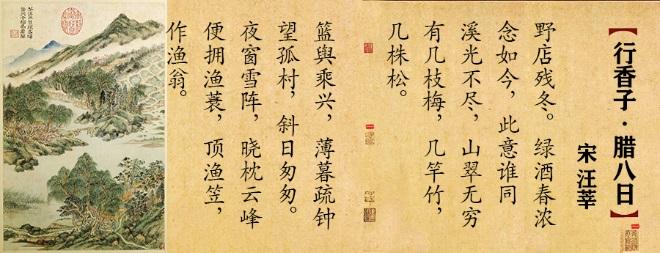 【行香子·腊八日】
宋 汪莘
野店残冬。绿酒春浓
念如今，此意谁同
溪光不尽，山翠无穷
有几枝梅，几竿竹，
几株松。
篮舆乘兴，薄暮疏钟
望孤村，斜日匆匆。
夜窗雪阵，晓枕云峰
便拥渔蓑，顶渔笠，
作渔翁。